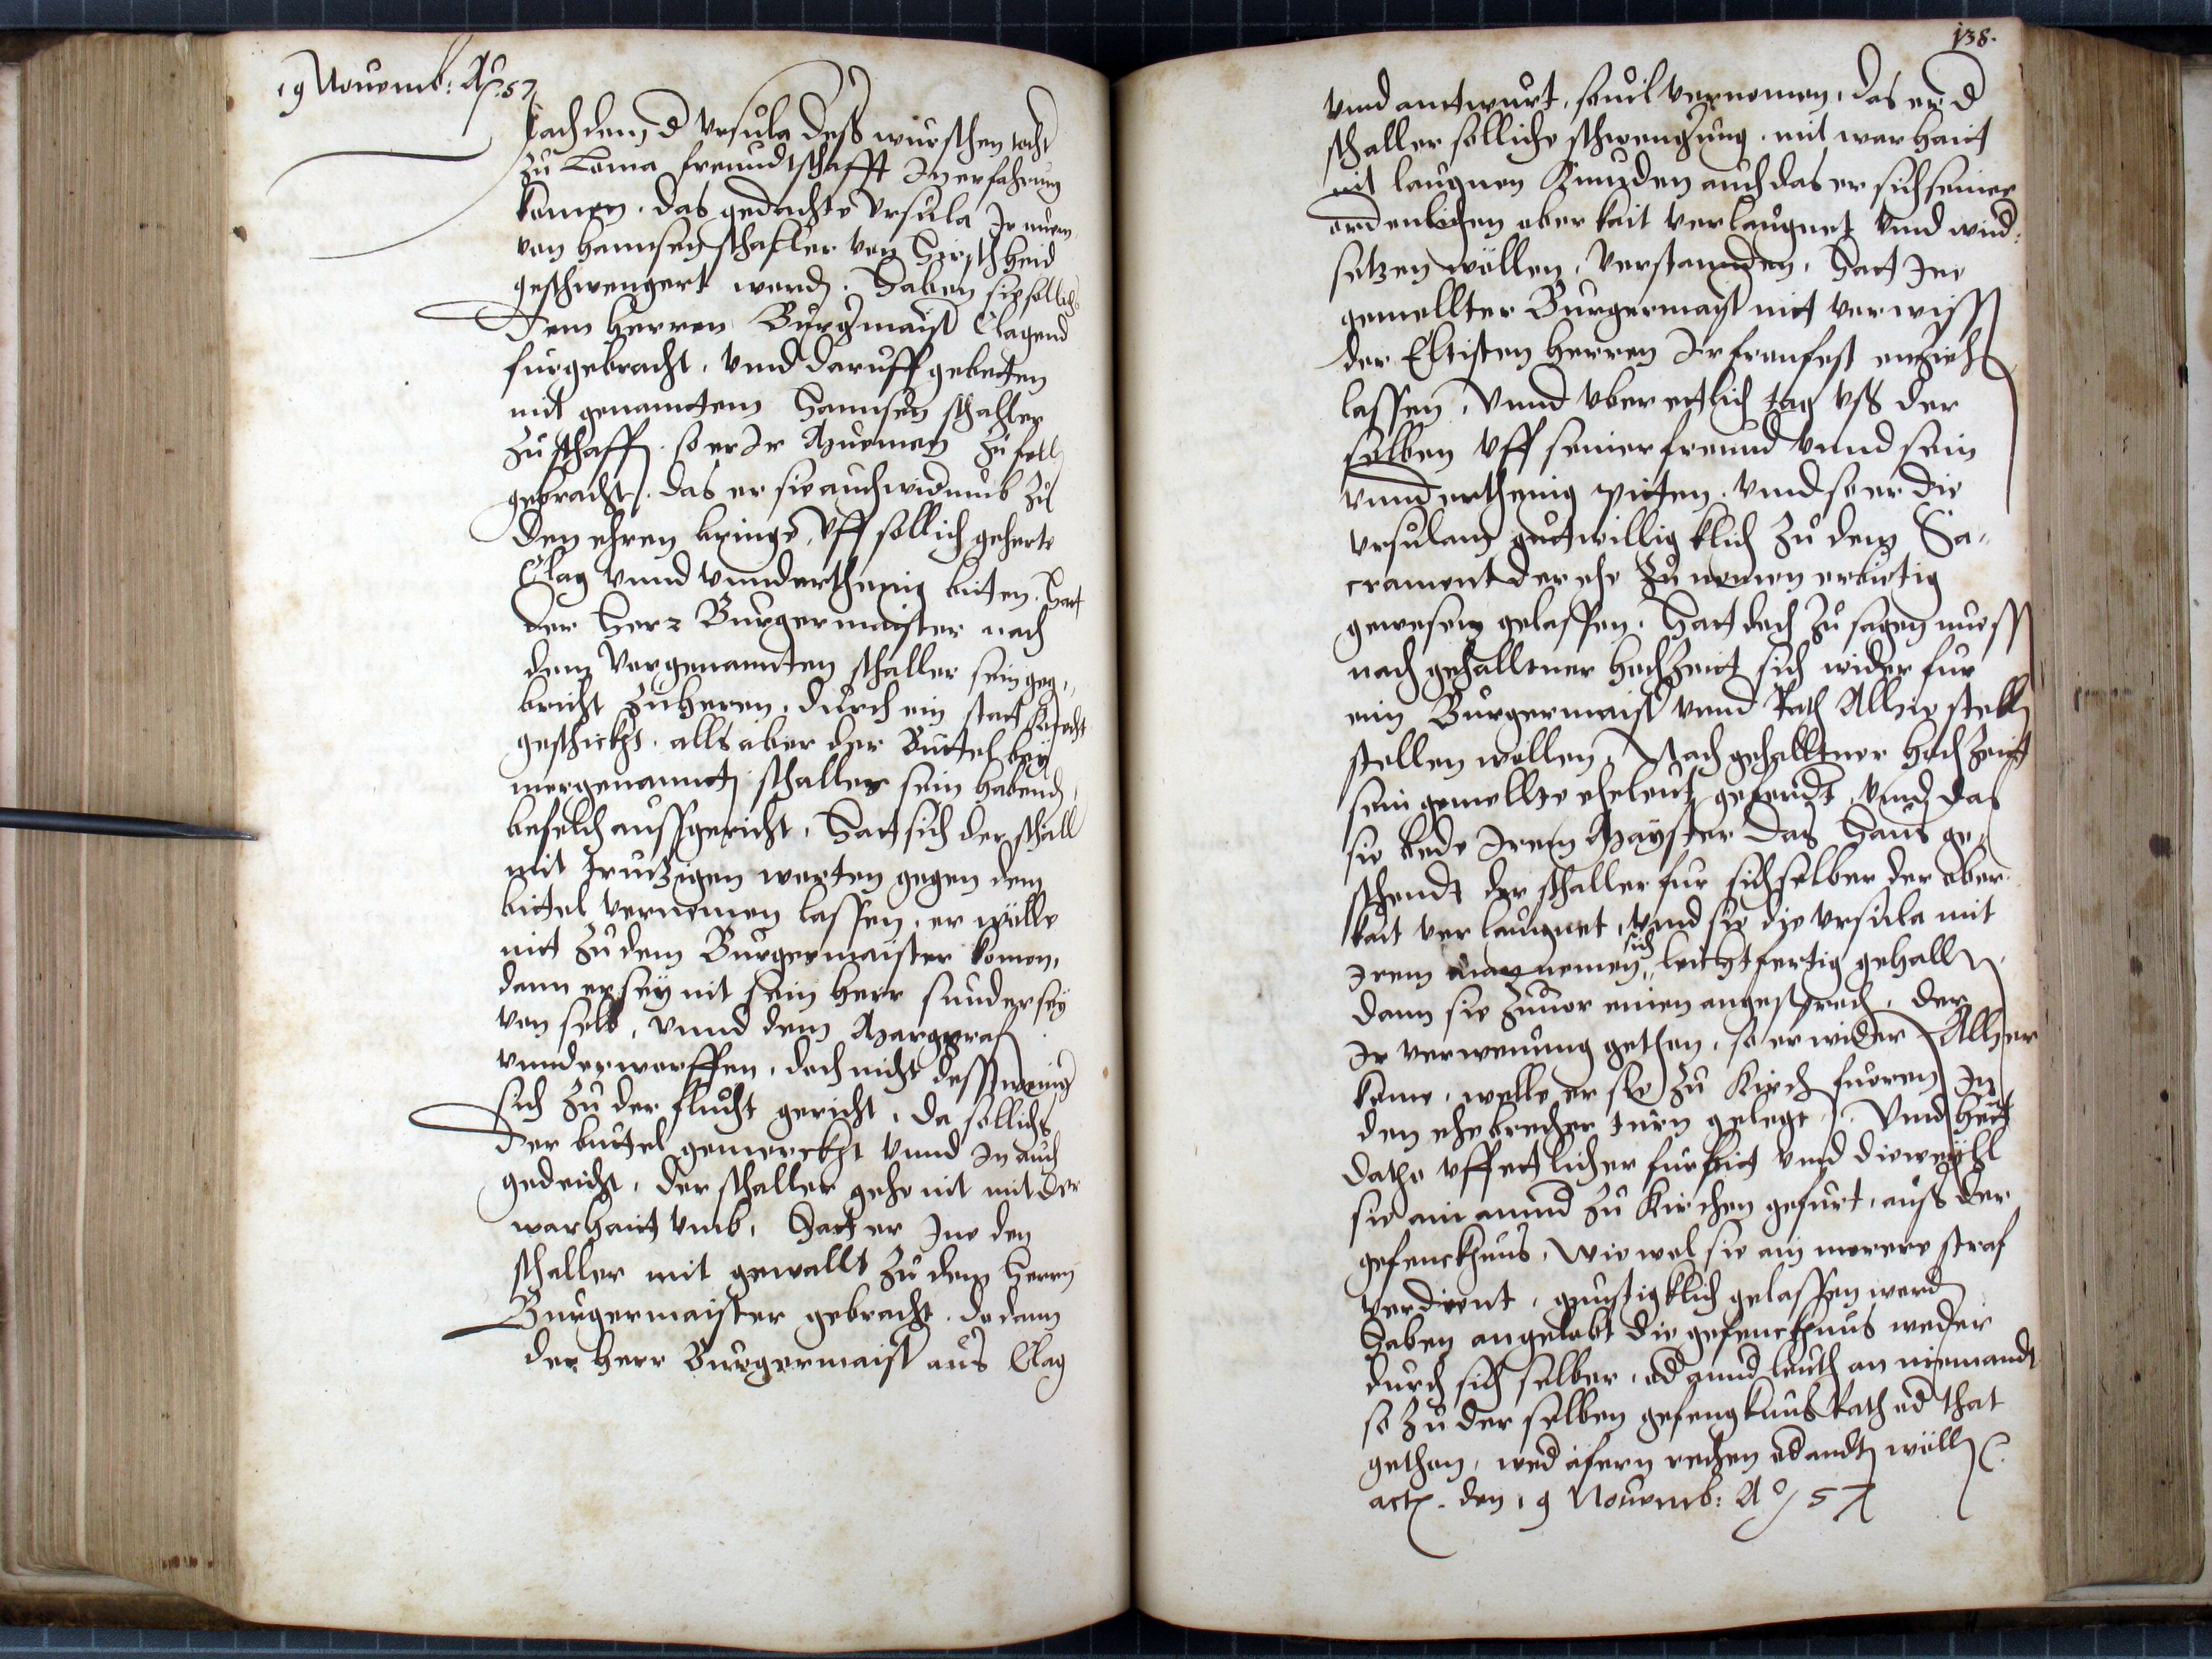 19 Nouemb: Aº 57
Nachdem d Vrsula dess wurschen tocht
zu Loma freundtschafft In erfahrung
komen. das gedachte Vrsula Ir muem
von Hannsen schaller von Hirscheid
geschwengert word. Haben sie sollichs
dem Herren Burgmaist Clagend
furgebracht, vnnd daruff gebetten
mit genanttem Hannsen schaller
zu schaffen. so er Ir Muemen zu fell
gebracht. das er sie auch widerumb zu
den ehren bringe, Vff sollich geherte
Clag vnnd vnnderthenig bitten. Hat
der Herr Burgermaister nach
dem vorgenannten schaller sein geg,,
bricht zuheren, durch ein statknecht
geschickht. alls aber der Buttel bey
mergenannten schaller sein habend
befelch aussgericht, Hatt sich der schall
mit trutzigen worten gegen dem
bittel vernemen lassen, er wölle
nit zu dem Burgermaister komen,
dann er sey nit sein herr sunder sey
von selb, vnnd dem Marggraf
vnnderworffen, doch nicht dessweniger
sich zu der flucht gericht, da sollichs
der buttel gemerckht vnnd In auch
gedeicht, der schaller gehe nit mit der
warhait vmb, Hatt er Ine den
schaller mit gewallt zu dem Herrn
Burgermaister gebracht. do dann
der Herr Burgermaist aus Clag
138.
vnnd anttwurt, souil vernomen, das er d
schaller solliche schwengung. mit warhait
nit laugnen kunnden auch das er sich seiner
ordenlichen oberkait verlaugnet vnnd wid:
setzen wöllen, verstannden, Hatt Ine
gemellter Burgermaist mit verwiss
der Eltisten Herren Ir fronfest einzieh
lassen, Vnnd vber ettlich tag vss der
selben vff seiner freund vnnd sein
vnnderthenig pitten. vnnd so er die
Vrsulam guttwilligklich zu dem Sa,,
crament der ehe zu nemen erbietig
gewesen gelassen. Hatt doch zu sagen muess
nach gehalltner hochzeit sich wider fur
ein Burgermaist vnnd Rath Allhie stell
stellen wollen, Nach gehalltner hochzeit
sein gemellte eheleut gefordt, vnnd das
sie bede Irem Mayster das Haus ge,,
schendt der schaller fur sich selber der ober
kait verlaugnet, vnnd sie die Vrsula mit
Irem man nemen sich leichtfertig gehallten
dann sie zuuor einen angesprochen, der
Ir verwenung gethon, so er wider Allher
kome, wolle er sie zu Kirch fueren In
den ehebrecher turn gelegt. Vnnd hett
dathe vff ettlicher furbitt vnnd dieweyhl
sie ain annd zu Kirchen gefurt, auss der
gefenckhnus, Wiewol sie ain merere straf
verdient, gunstigklich gelassen word
Haben angelobt die gefenckhnus weder
durch sich selber, od annd leuth an niemandt
so zu der selben gefengknus Rath od that
gethon, wed äfern rechen od andt wöll
act. den 19 Nouemb: Aº 57